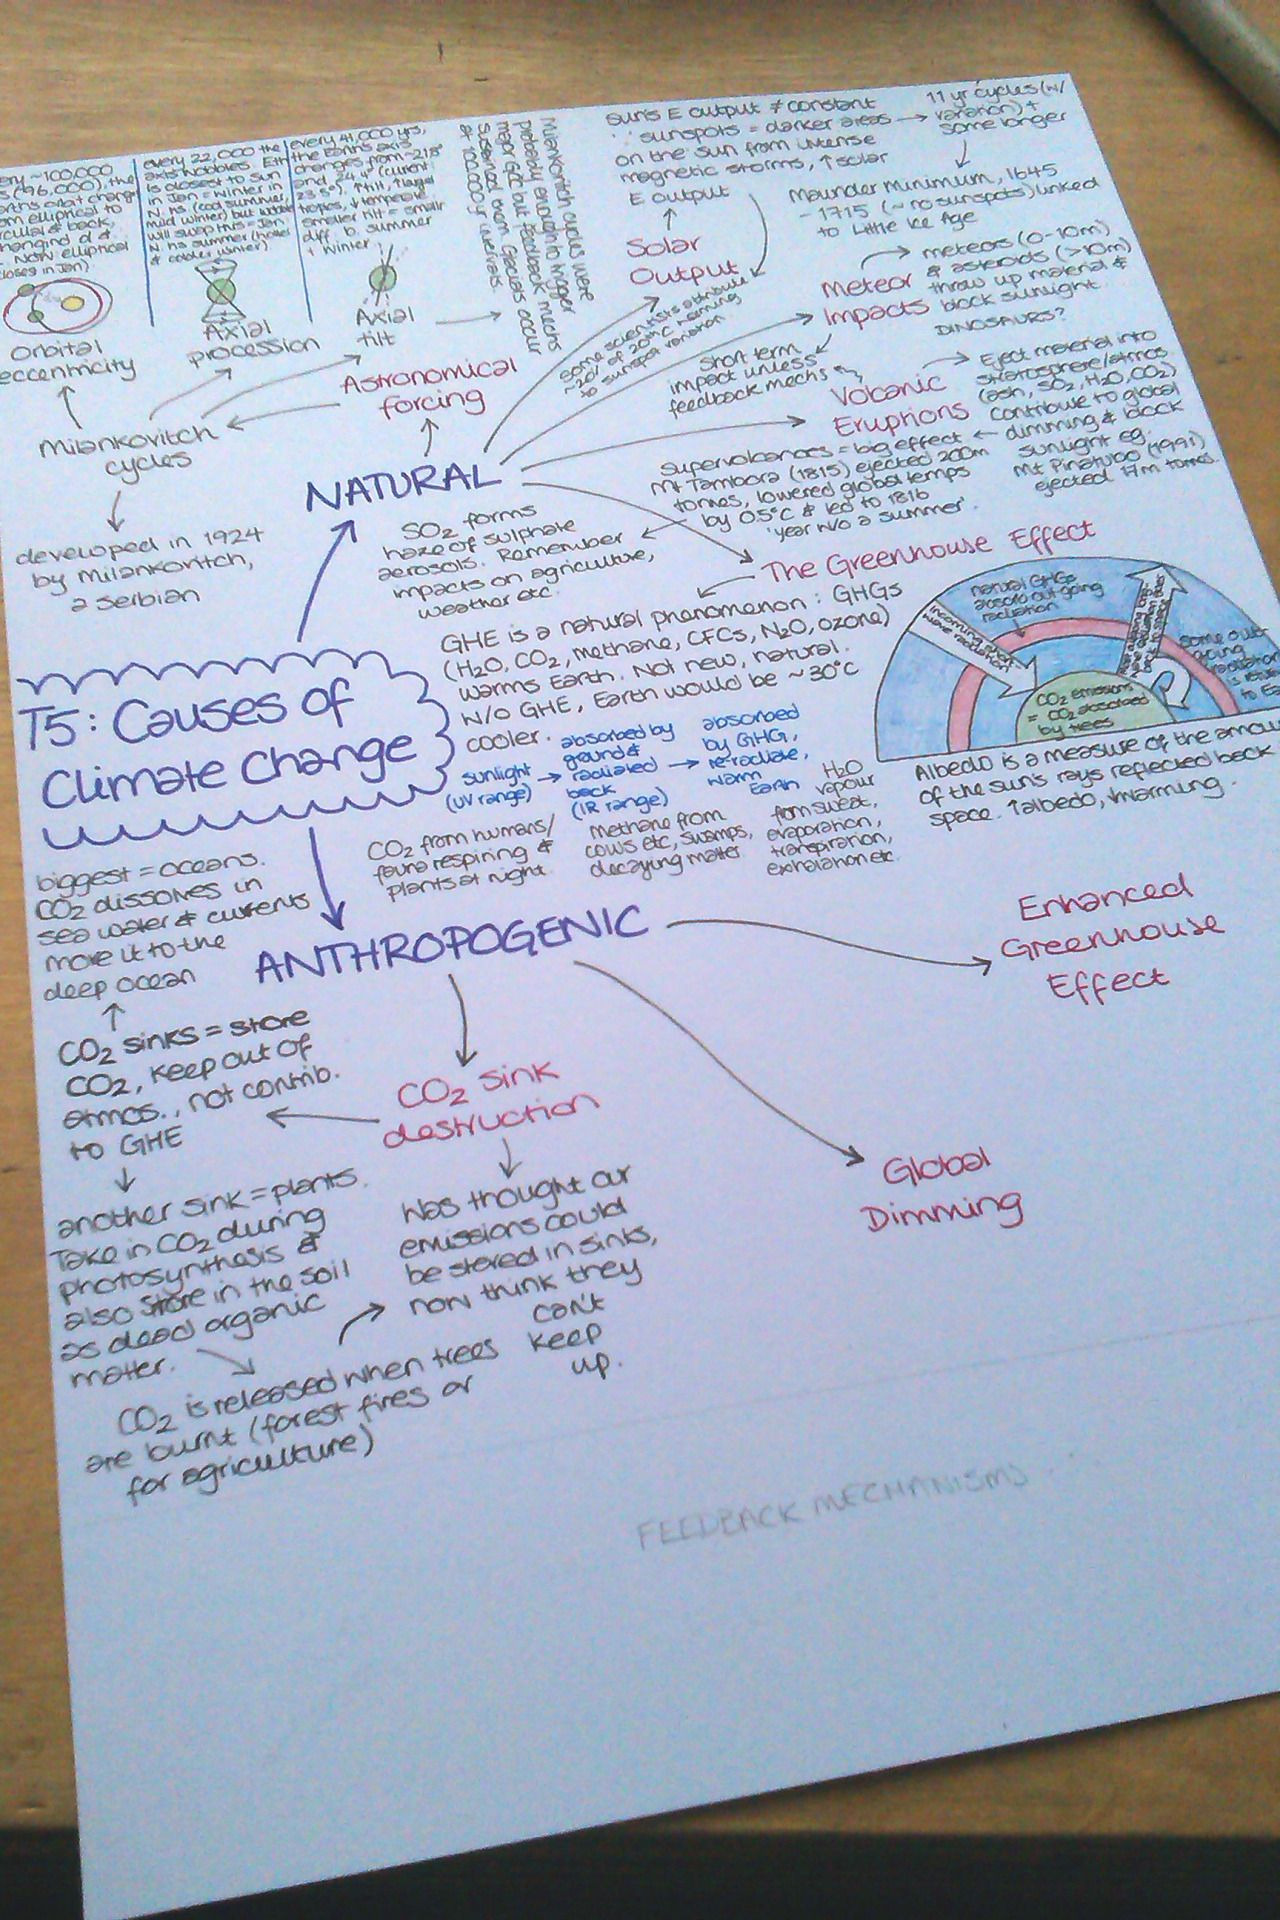 every 22,000 the
axis wobbles. Eth
is closest to sun
in Jan, winter in
N hs (cool summer,
mild winter) but
will swap this = Jan
N hs summer (hotter
& cooler winter)
every 41,000 yrs,
the Earth's axis
changes from ~21.8°
and 24.4° (current
23.5°). ↑ tilt, ↑ larger
tropics, ↓ temperate
smaller tilt = small
diff b. summer
+ winter
Milankovitch cycles were
probably enough to trigger
major GCC but feedback mechs
sustained them. Glacials occur
at 100,000yr intervals.
~100,000
(96,000), the
orbit change
elliptical to
circular & back,
changing d &
. Now elliptical
(closest in Jan)
Orbital
eccentricity
Axial
procession
Axial
tilt
Astronomical
forcing
Milankovitch
cycles
developed in 1924
by Milankovitch,
a Serbian
sun's E output ≠ constant
∵ sunspots = darker areas
on the sun from intense
magnetic storms, ↑ solar
E output
11 yr cycles (w/
variation) +
some longer
Maunder Minimum, 1645
- 1715 (~ no sunspots) linked
to Little Ice Age
Solar
Output
some scientists attribute
~20% of 20thC warming
to sunspot variation
Meteor
Impacts
meteors (0-10m)
& asteroids (>10m)
throw up material &
block sunlight.
DINOSAURS?
short term
impact unless
feedback mechs
Volcanic
Eruptions
Eject material into
stratosphere/atmos
(ash, SO2, H2O, CO2)
contribute to global
dimming & block
sunlight eg.
Mt Pinatubo (1991)
ejected 17m tonnes.
supervolcanoes = big effect
Mt Tambora (1815) ejected 200m
tonnes, lowered global temps
by 0.5°C & led to 1816
'year w/o a summer'.
SO2 forms
haze of sulphate
aerosols. Remember
impacts on agriculture,
weather etc.
NATURAL
The Greenhouse Effect
GHE is a natural phenomenon: GHGs
(H2O, CO2, methane, CFCs, N2O, ozone)
warms Earth. Not new, natural.
W/o GHE, Earth would be ~30°C
cooler.
sunlight
(UV range)
absorbed by
ground &
radiated
back
(IR range)
absorbed
by GHG,
re-radiate,
warm
Earth
incoming short-
wave radiation
natural GHGs
absorb out-going
radiation
some out
going
radiation
is return
to Ea
CO2 emissions
= CO2 absorbed
by trees
Albedo is a measure of the amou
of the sun's rays reflected back
space. ↑albedo, ↓warming.
T5: Causes of
Climate Change
CO2 from humans/
fauna respiring &
plants at night.
methane from
cows etc, swamps,
decaying matter.
H2O
vapour
from sweat,
evaporation,
transpiration,
exhalation etc.
ANTHROPOGENIC
Enhanced
Greenhouse
Effect
Global
Dimming
CO2 sink
destruction
biggest = oceans.
CO2 dissolves in
sea water & currents
move it to the
deep ocean
CO2 sinks = store
CO2, keep out of
atmos., not contrib.
to GHE
another sink = plants.
Take in CO2 during
photosynthesis &
also store in the soil
as dead organic
matter.
Was thought our
emissions could
be stored in sinks,
now think they
can't
keep
up.
CO2 is released when trees
are burnt (forest fires or
for agriculture)
FEEDBACK MECHANISMS...